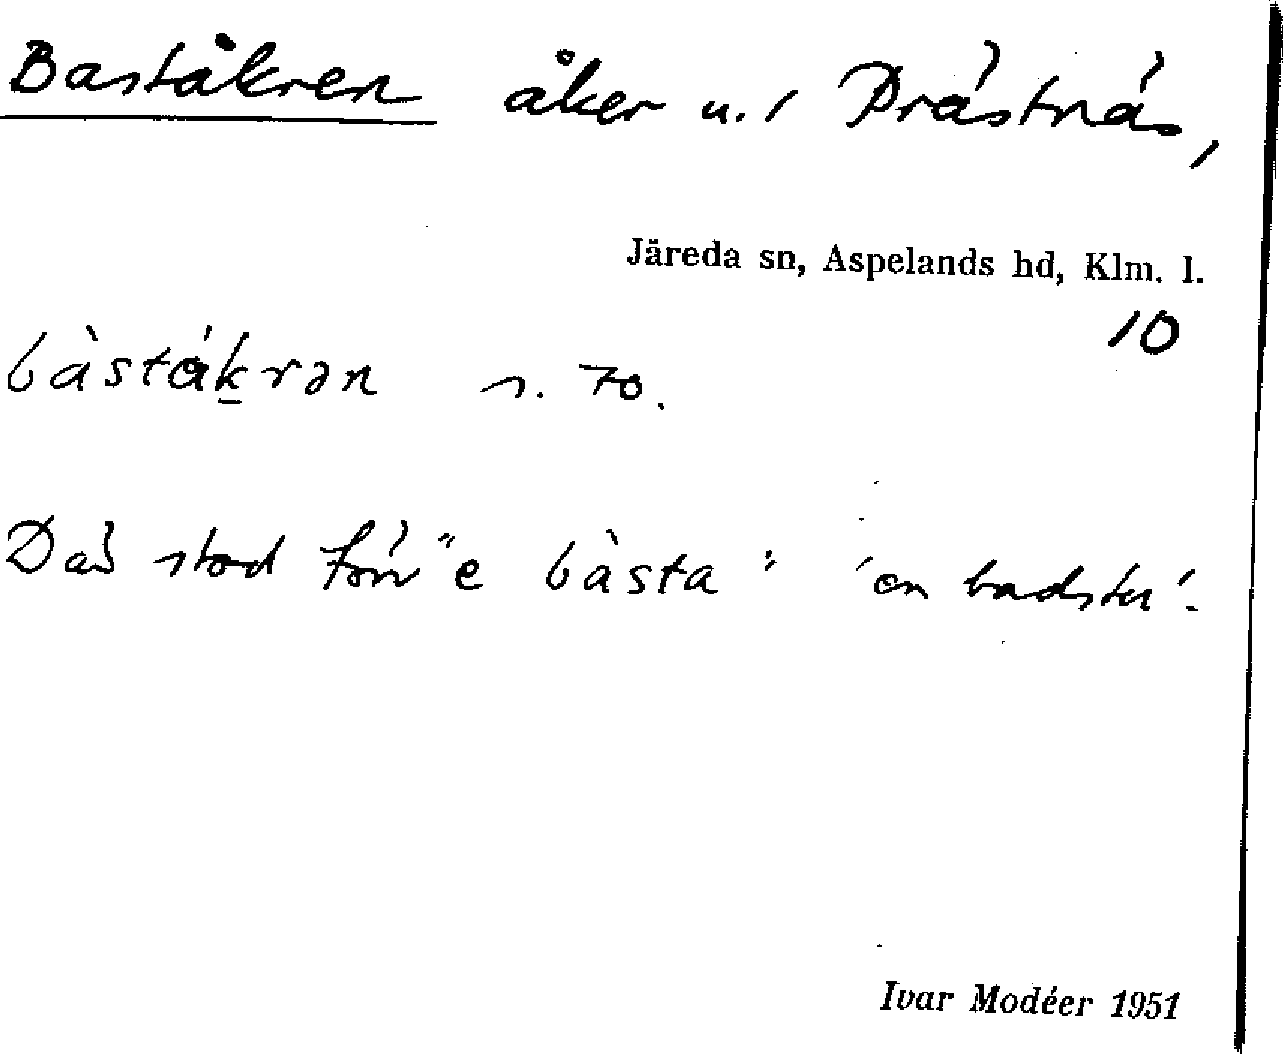 Baståkren åker u. / Prästnäs,
Järeda sn, Aspelands hd, Klm. l.
10
bàstákrən s. 70.
Där stod förr "e bàsta" 'en badstu'.
Ivar Modéer 1951